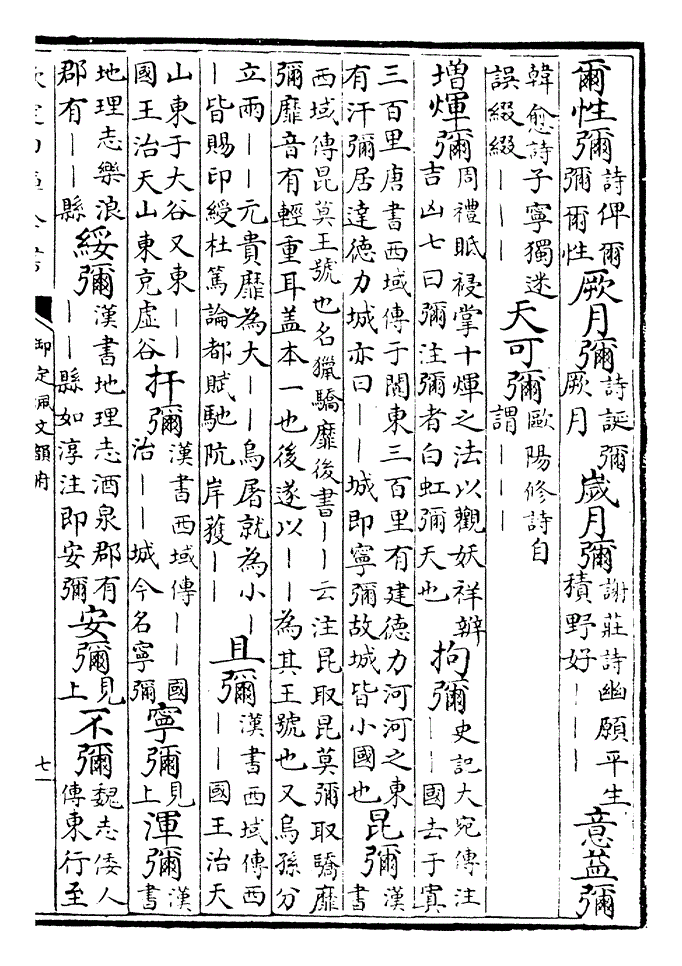 爾性彌詩俾爾彌爾性厥月彌詩誕彌厥月歲月彌謝莊詩幽願平生積野好｜｜｜意益彌
韓愈詩子寧獨迷誤綴綴｜｜｜天可彌歐陽修詩自謂｜｜｜
增煇彌周禮眡祲掌十煇之法以觀妖祥辨吉凶七曰彌注彌者白虹彌天也拘彌史記大宛傳注｜｜國去于窴
三百里唐書西域傳于闐東三百里有建德力河河之東有汗彌居達德力城亦曰｜｜城即寧彌故城皆小國也昆彌漢書
西域傳昆莫王號也名獵驕靡後書｜｜云注昆取昆莫彌取驕靡彌靡音有輕重耳盖本一也後遂以｜｜為其王號也又烏孫分
立兩｜｜元貴靡為大｜｜烏屠就為小｜｜皆賜印綬杜篤論都賦馳阬岸獲｜｜且彌漢書西域傳西｜｜國王治天
山東于大谷又東｜｜國王治天山東兊虛谷扜彌漢書西域傳｜｜國治｜｜城今名寧彌寧彌見上渾彌漢書
地理志樂浪郡有｜｜縣綏彌漢書地理志酒泉郡有｜｜縣如淳注即安彌安彌見上不彌魏志倭人傳東行至
御定佩文韻府